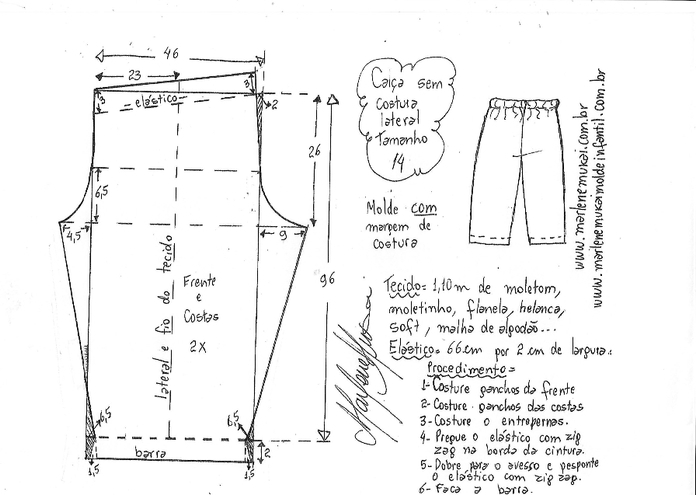 46
23
3
3
elástico
2
Calça sem
Costura
lateral
Tamanho
14
26
6,5
4,5
9
96
Molde com
margem de
costura
lateral e fio do tecido
Frente
e
Costas
2X
6,5
6,5
barra
2
1,5
1,5
www.marlenemukai.com.br
www.marlenemukaimoldeinfantil.com.br
Tecido= 1,10 m de moletom,
moletinho, flanela, helanca,
soft, malha de algodão...
Elástico= 66cm por 2 cm de largura.
Procedimento=
1- Costure ganchos da frente
2- Costure ganchos das costas
3- Costure o entrepernas.
4- Pregue o elástico com zig
zag na borda da cintura.
5- Dobre para o avesso e pesponte
o elástico com zig zag.
6- Faça a barra.